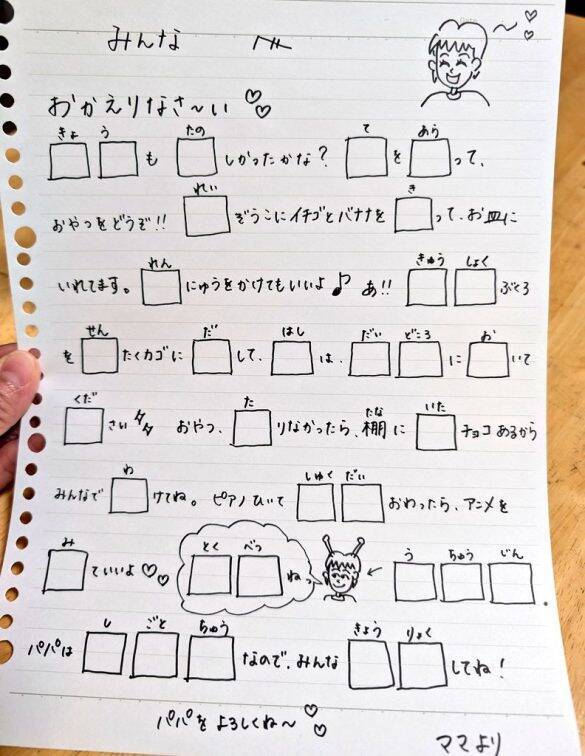 みんな へ
おかえりなさ～い♡♡
□□も□しかったかな？□を□って、
きょ う たの て あら
おやつをどうぞ!!□ぞうこにイチゴとバナナを□って、お皿に
れい き
いれてます。□にゅうをかけてもいいよ♪あ!!□□ぶくろ
れん きゅう しょく
を□たくカゴに□して、□は、□□に□いて
せん だ はし だい どころ お
□さい おやつ、□りなかったら、棚に□チョコあるから
くだ た たな いた
みんなで□けてね。ピアノひいて□□おわったら、アニメを
わ しゅく だい
□ていいよ♡♡ □□ねっ ← □□□.
み とく べつ う ちゅう じん
パパは□□□なので、みんな□□してね！
し ごと ちゅう きょう りょく
パパをよろしくね～♡♡
ママより